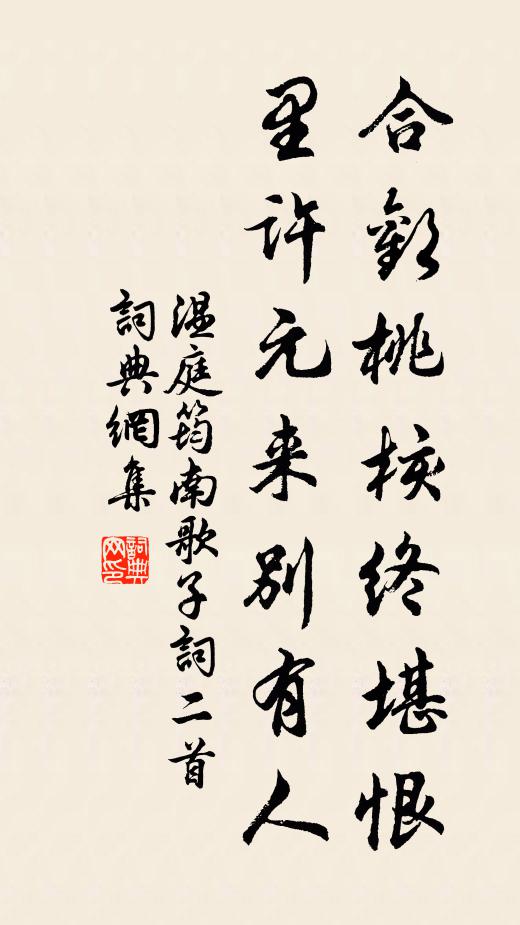 合歡桃核终堪恨
里許元来别有人
温庭筠南歌子詞二首
詞典網集
詞典网印